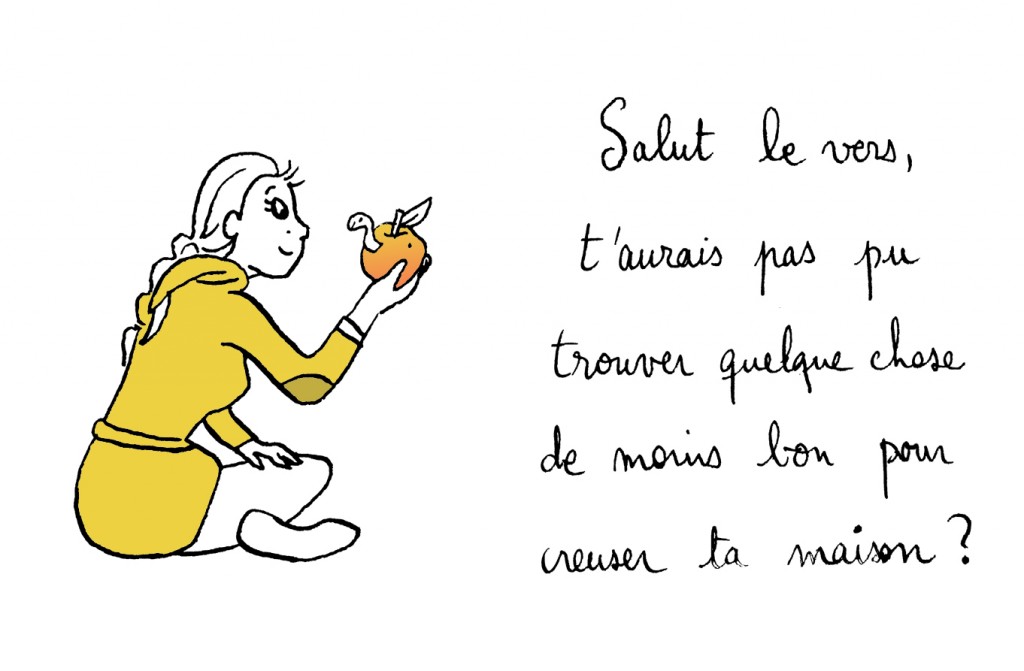 Salut le vers,
t'aurais pas pu
trouver quelque chose
de moins bon pour
creuser ta maison ?